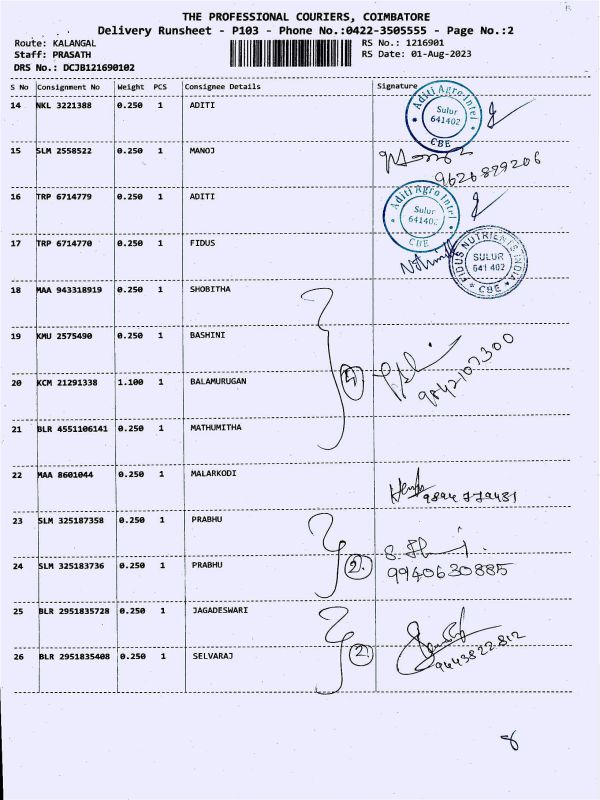 THE PROFESSIONAL COURIERS, COIMBATORE
Delivery Runsheet - P103 - Phone No.:0422-3505555 - Page No.:2
Route: KALANGAL RS No.: 1216901
Staff: PRASATH RS Date: 01-Aug-2023
DRS No.: DCJB121690102
S No Consignment No Weight PCS Consignee Details Signature
14 NKL 3221388 0.250 1 ADITI
Aditi Agro Intel
Sulur
641402
CBE
15 SLM 2558522 0.250 1 MANOJ
9626899206
16 TRP 6714779 0.250 1 ADITI
Aditi Agro Intel
Sulur
641402
CBE
17 TRP 6714770 0.250 1 FIDUS
FIDUS NUTRIENTS INDIA
SULUR
641 402
* CBE *
18 MAA 943318919 0.250 1 SHOBITHA
19 KMU 2575490 0.250 1 BASHINI
9842102300
20 KCM 21291338 1.100 1 BALAMURUGAN
4
21 BLR 4551106141 0.250 1 MATHUMITHA
22 MAA 8601044 0.250 1 MALARKODI
23 SLM 325187358 0.250 1 PRABHU
24 SLM 325183736 0.250 1 PRABHU
2
9940630885
25 BLR 2951835728 0.250 1 JAGADESWARI
26 BLR 2951835408 0.250 1 SELVARAJ
2
9443822812
8